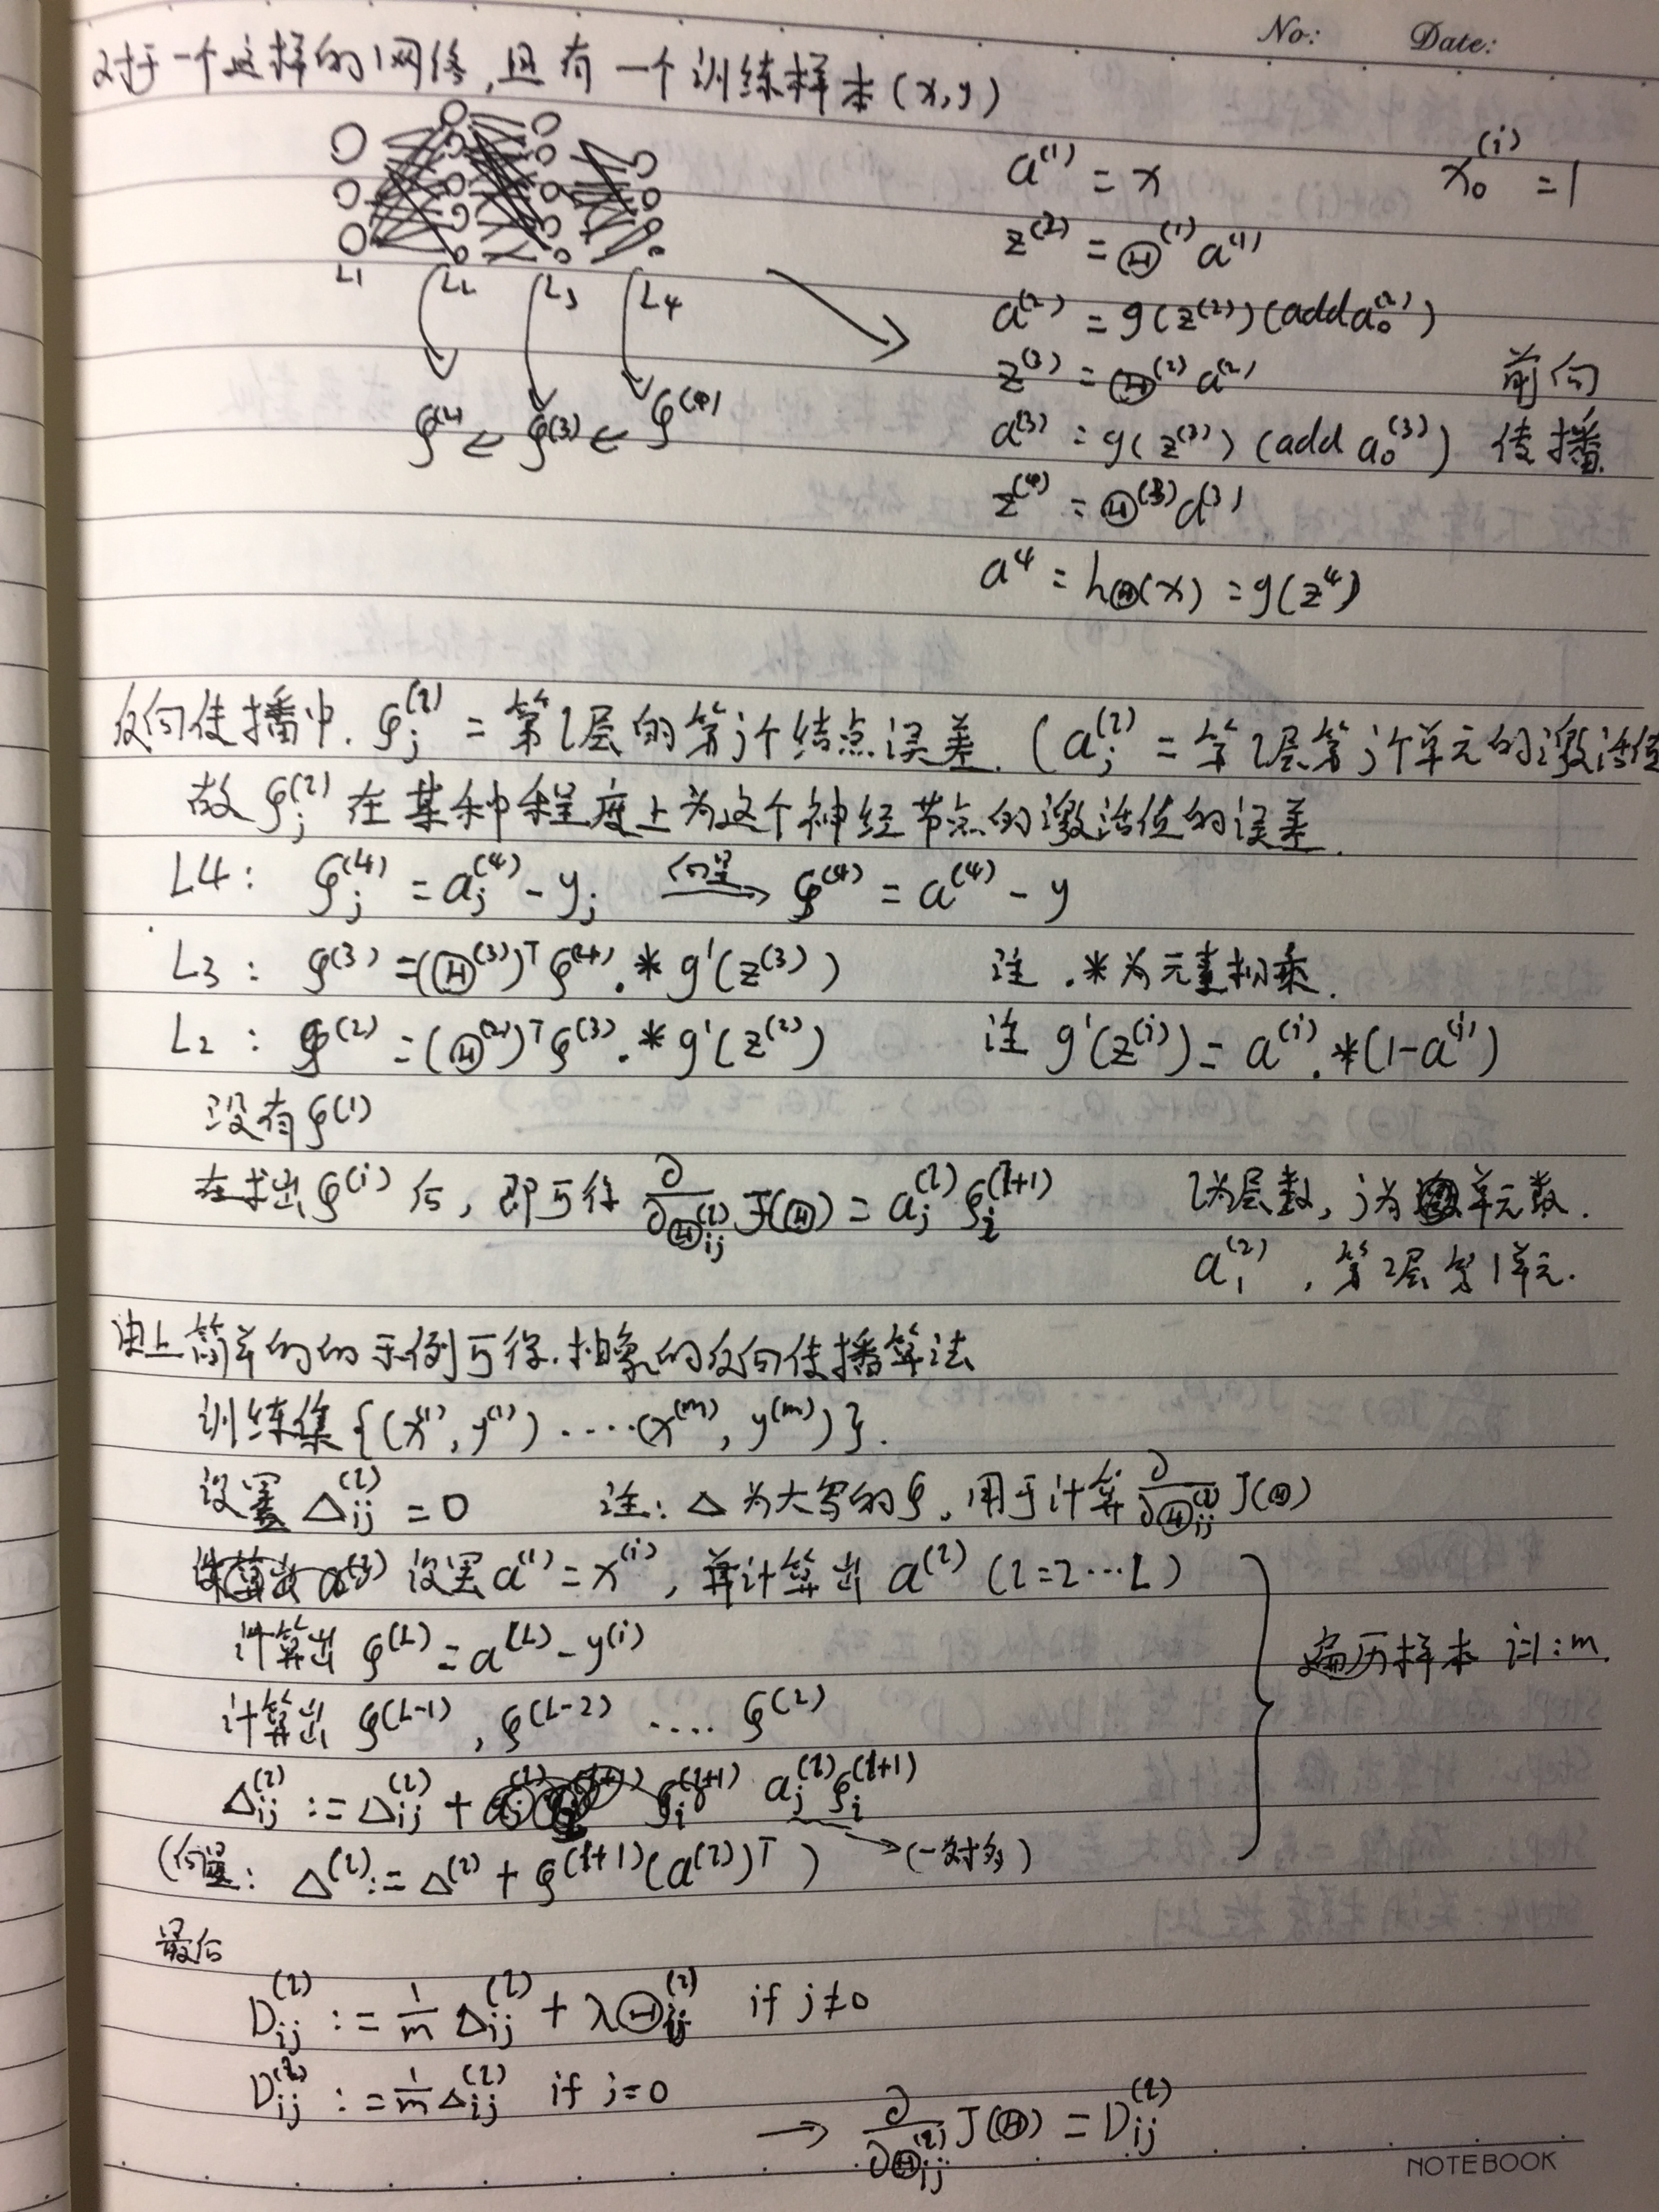 No: Date:
对于一个这样的网络,且有一个训练样本(x,y)
L1 L2 L3 L4
δ⁽²⁾ ← δ⁽³⁾ ← δ⁽⁴⁾
a⁽¹⁾ = x x₀⁽ⁱ⁾ = 1
z⁽²⁾ = Θ⁽¹⁾a⁽¹⁾
a⁽²⁾ = g(z⁽²⁾)(add a₀⁽²⁾)
z⁽³⁾ = Θ⁽²⁾a⁽²⁾ 前向
a⁽³⁾ = g(z⁽³⁾) (add a₀⁽³⁾) 传播.
z⁽⁴⁾ = Θ⁽³⁾a⁽³⁾
a⁴ = hΘ(x) = g(z⁴)
反向传播中. δⱼ⁽ˡ⁾ = 第l层的第j个结点误差. (aⱼ⁽ˡ⁾ = 第l层第j个单元的激活值
故 δⱼ⁽ˡ⁾ 在某种程度上为这个神经节点的激活值的误差.
L4: δⱼ⁽⁴⁾ = aⱼ⁽⁴⁾ - yⱼ 向量→ δ⁽⁴⁾ = a⁽⁴⁾ - y
L3: δ⁽³⁾ = (Θ⁽³⁾)ᵀδ⁽⁴⁾.* g'(z⁽³⁾) 注 .*为元素相乘.
L2: δ⁽²⁾ = (Θ⁽²⁾)ᵀδ⁽³⁾.* g'(z⁽²⁾) 注 g'(z⁽ⁱ⁾) = a⁽ⁱ⁾.*(1-a⁽ⁱ⁾)
没有δ⁽¹⁾
在求出δ⁽ⁱ⁾后, 即可得 ∂/∂Θᵢⱼ⁽ˡ⁾ J(Θ) = aⱼ⁽ˡ⁾δᵢ⁽ˡ⁺¹⁾ l为层数, j为单元数.
a₁⁽²⁾, 第2层第1单元.
由上简单的的示例可得.抽象的反向传播算法
训练集{(x⁽¹⁾, y⁽¹⁾)·····(x⁽ᵐ⁾, y⁽ᵐ⁾)}.
设置 Δᵢⱼ⁽ˡ⁾ = 0 注: Δ为大写的δ, 用于计算 ∂/∂Θᵢⱼ⁽ˡ⁾ J(Θ)
设置a⁽¹⁾ = x⁽ⁱ⁾, 并计算出 a⁽ˡ⁾ (l=2···L)
计算出 δ⁽ᴸ⁾ = a⁽ᴸ⁾ - y⁽ⁱ⁾
遍历样本 i=1:m.
计算出 δ⁽ᴸ⁻¹⁾, δ⁽ᴸ⁻²⁾ ···· δ⁽²⁾
Δᵢⱼ⁽ˡ⁾ := Δᵢⱼ⁽ˡ⁾ + aⱼ⁽ˡ⁾δᵢ⁽ˡ⁺¹⁾
(向量: Δ⁽ˡ⁾ := Δ⁽ˡ⁾ + δ⁽ˡ⁺¹⁾(a⁽ˡ⁾)ᵀ) →(一对多)
最后
Dᵢⱼ⁽ˡ⁾ := 1/m Δᵢⱼ⁽ˡ⁾ + λΘᵢⱼ⁽ˡ⁾ if j≠0
Dᵢⱼ⁽ˡ⁾ := 1/m Δᵢⱼ⁽ˡ⁾ if j=0
→ ∂/∂Θᵢⱼ⁽ˡ⁾ J(Θ) = Dᵢⱼ⁽ˡ⁾
NOTEBOOK